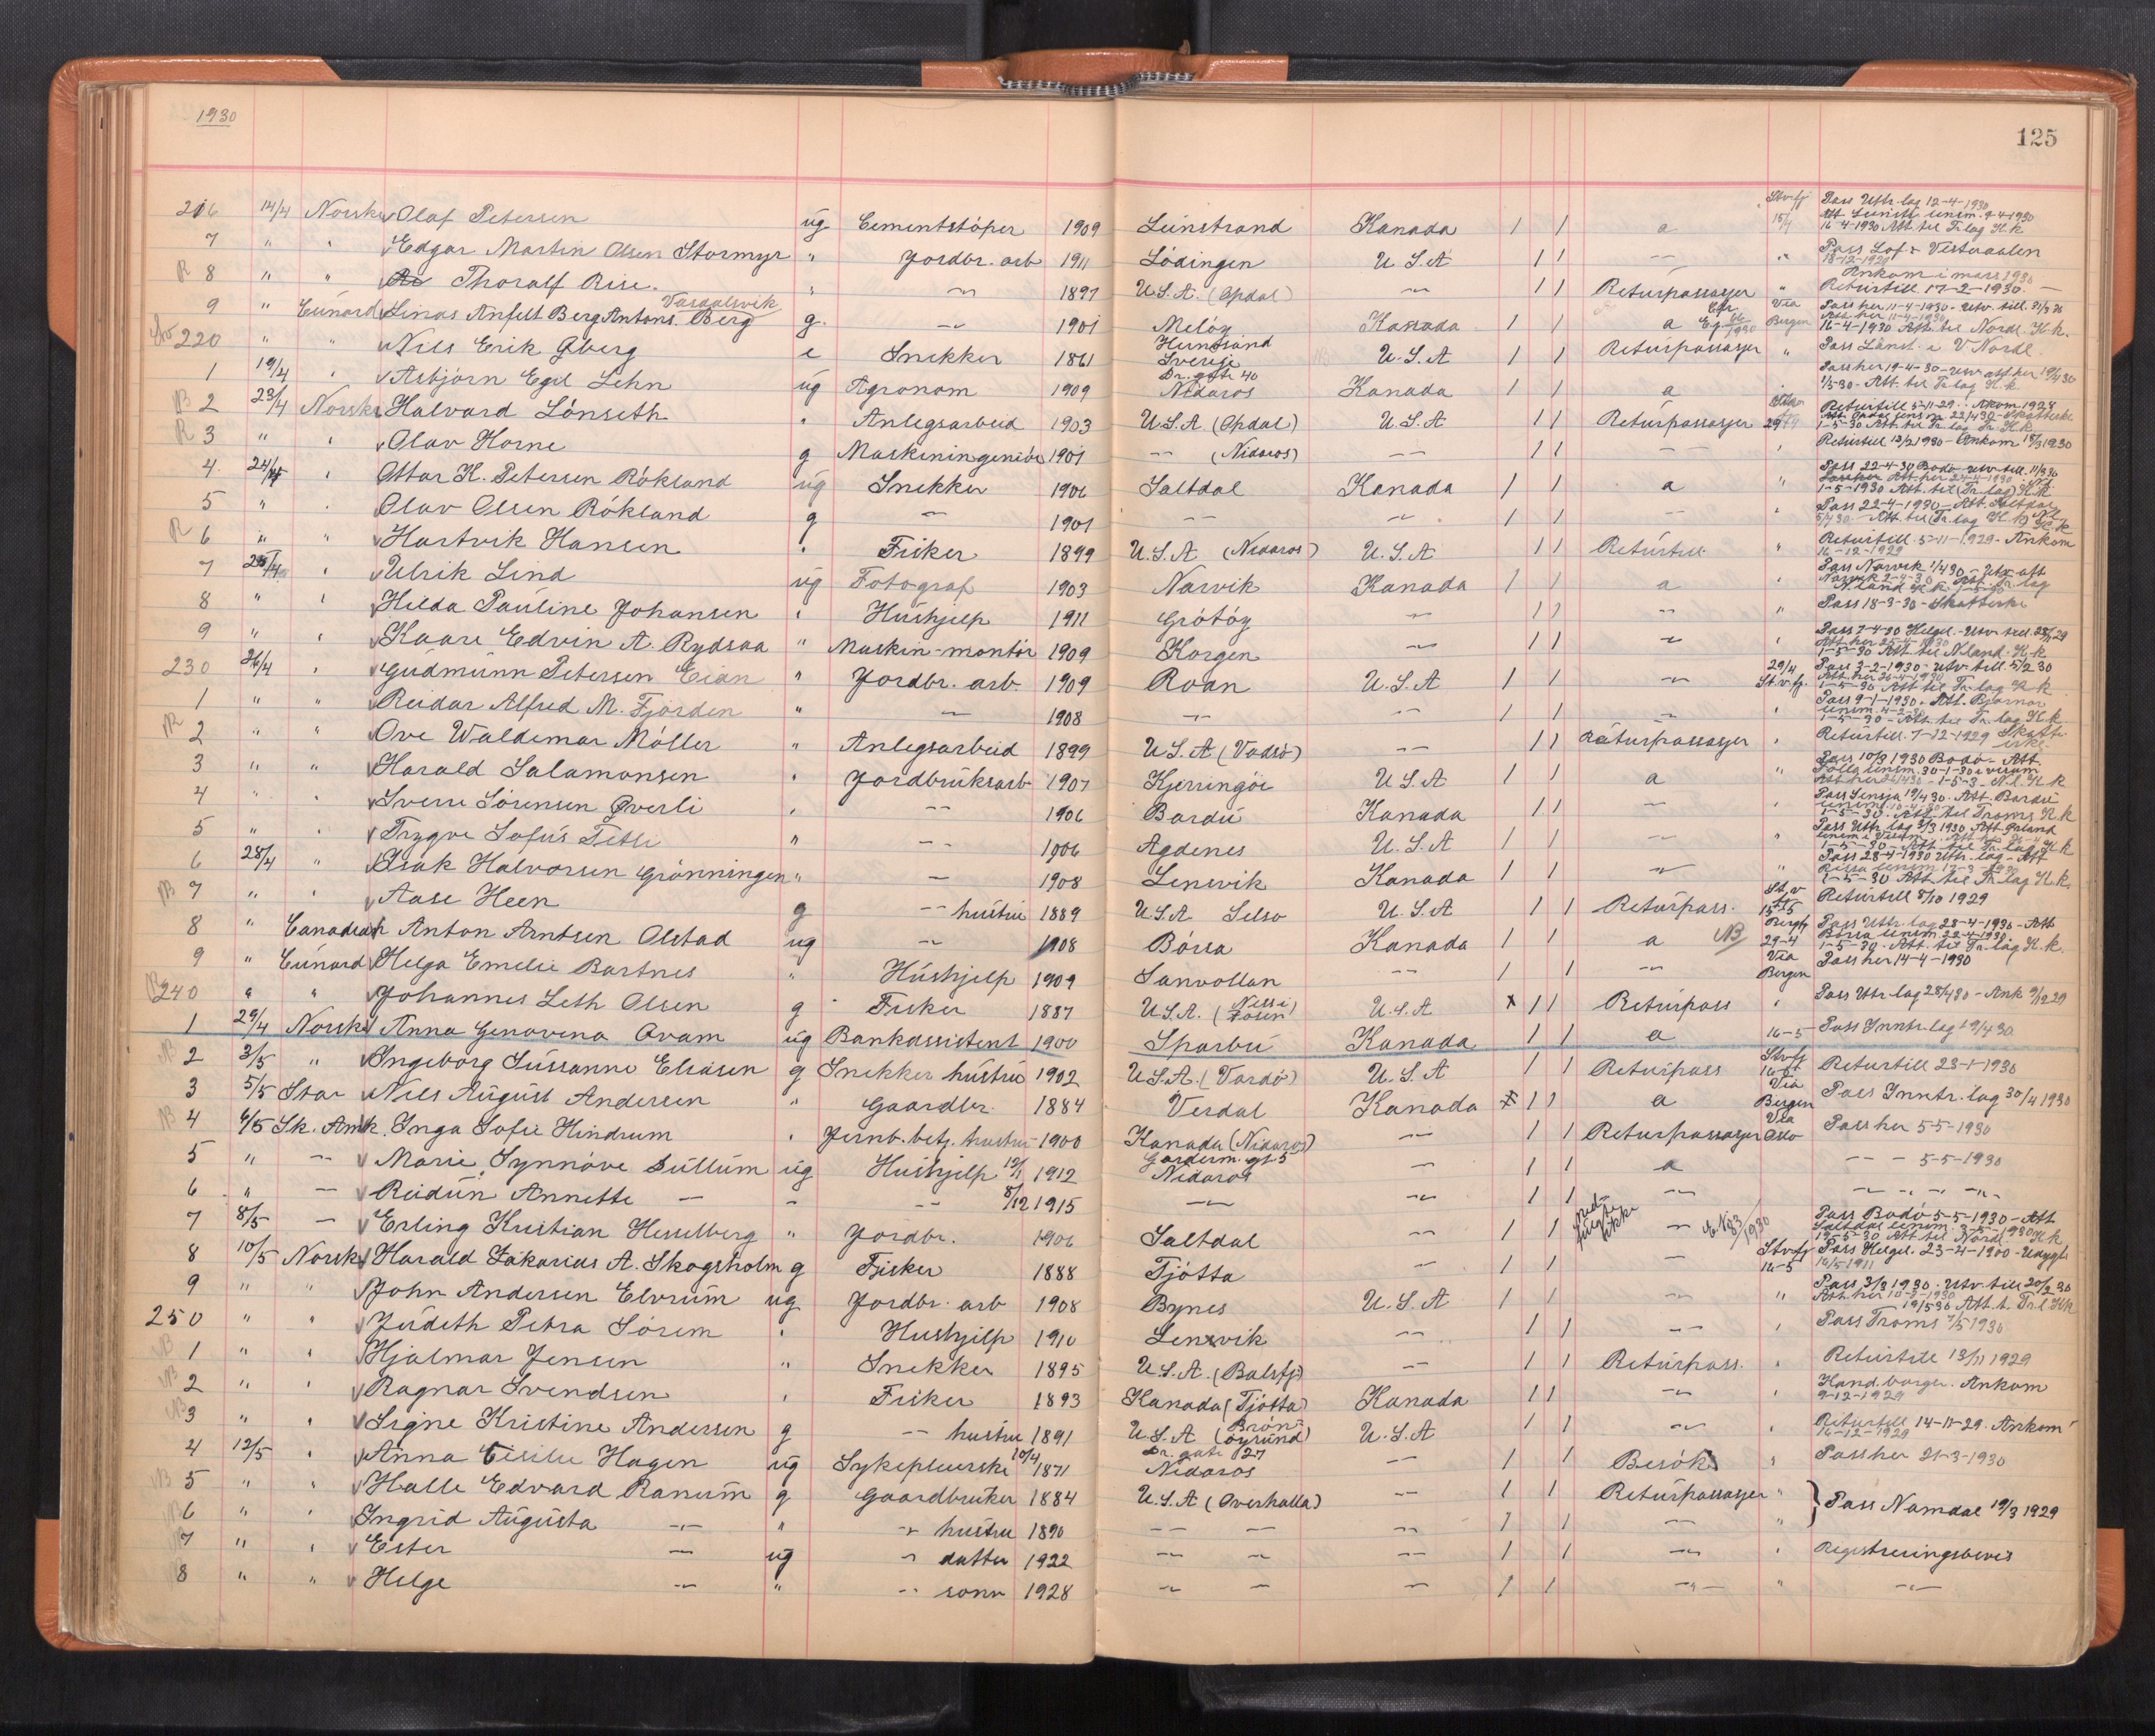 1930
125
216 14/4 Norske Olaf Petersen ug Cementstöper 1909 Leinstrand Kanada 1 1 a 15/4 Pass Uttr.lag 12-4-1930
16-4-1930 Att. til Tr.lag K.k
7 " " Edgar Martin Olsen Stormyr " Jordbr. arb 1911 Lödingen U.S.A 1 1 — " Pass Lof. Vesteraalen
18-12-1929
R 8 " " Thoralf Rise. " — 1897 U.S.A. (Opdal) — 1 1 Returpassasjer " Ankom i mars 1930
Returtill 17-2-1930
9 " Cunard Linas Anfelt Berg Antons. Berg g. — 1901 Melöy Kanada 1 1 a Via Bergen Pass her 11-4-1930 - Utv. till. 31/3 30
Att. her 11-4-1930
16-4-1930 Att. til Nordl. K.k.
220 " " Nils Erik Öberg e Snekker 1861 Sverige U.S.A 1 1 Returpassasjer " Pass Länst. i V Nordl.
1 19/4 " Asbjörn Egil Lehn ug Agronom 1909 Dr. gate 40
Nidaros Kanada 1 1 a Pass her 19-4-30 - Utv. att. her 19/4 30
1/5-30 - Att. til Tr.lag K.k
2 23/4 Norske Halvard Lönseth " Anlegsarbeid 1903 U.S.A. (Opdal) U.S.A 1 1 Returpassasjer 29/4 Returtill 5-11-29 - Ankom 1928
1-5-30 Att. til Tr.lag K.k
R 3 " " Olav Horne g Maskiningeniör 1901 — (Nidaros) — 1 1 — " Returtill 12/2 1930 - Ankom 15/3 1930
4 24/4 " Ottar K. Petersen Rökland ug Snekker 1906 Saltdal Kanada 1 1 a " Pass 22-4-30 Bodö - Utv. till. 11/3 30
1-5-1930 Att. til (Tr.lag) K.k
5 " " Olav Olsen Rökland g — 1901 — — 1 1 — " Pass 22-4-1930 - Att. Saltdal
R 6 " " Hartvik Hansen " Fisker 1899 U.S.A (Nidaros) U.S.A 1 1 Returtill. " Returtill. 5-11-1929 - Ankom
16-12-1929
7 25/4 " Ulrik Lind ug Fotograf 1903 Narvik Kanada 1 1 a " Pass Narvik 1/4 30 - Utv. att
Narvik 2-4-30
8 " " Hilda Pauline Johansen " Hushjelp 1911 Grötöy — 1 1 — " Pass 18-3-30 - Skatteske
9 " " Kaare Edvin A. Rydsaa " Maskin-montör 1909 Korgen — 1 1 — " Pass 7-4-30 Helgel. - Utv. till. 28/11 29
Att. her 25-4-1930
1-5-30 Att. til N.land. K.k
230 26/4 " Gudmunn Petersen Eian " Jordbr. arb. 1909 Roan U.S.A 1 1 — 29/4 St.v.fj. Pass 3-2-1930 - Utv. till. 5/2 30
Att. her 26-4-1930
1-5-30 Att. til Tr.lag K.k
1 " " Reidar Alfred M. Fjorden " — 1908 — — 1 1 — " Pass 9-1-1930 - Att. Bjørnør
1-5-30 - Att. til Tr.lag K.k
R 2 " " Ove Waldemar Möller " Anlegsarbeid 1899 U.S.A (Vadsö) — 1 1 Returpassasjer " Returtill. 7-12-1929 Skatte
3 " " Harald Salamonsen " Jordbruksarb 1907 Kjerringöi U.S.A 1 1 a " Pass 10/3 1930 Bodö - Att.
4 " " Sverre Sörensen Överli " — 1906 Bardu Kanada 1 1 — " Pass Senja 19/4 30 - Att. Bardu
1-5-30. Att. til Troms K.k
5 " " Trygve Sofus Tetli " — 1906 Agdenes U.S.A 1 1 — " Pass Uttr.lag 3/3 1930
1-5-30 - Att. til Tr.lag K.k
6 28/4 " Isak Halvorsen Grönningen " — 1908 Lensvik Kanada 1 1 — " Pass 28-4-1930 Uttr.lag - Att
1-5-30 Att. til Tr.lag K.k.
7 " " Aase Heen g — hustru 1889 U.S.A Selso U.S.A 1 1 Returpass. 15-5 Returtill 8/10 1929
8 " Canadian Anton Arntsen Olstad ug — 1908 Börsa Kanada 1 1 a 29-4 Pass Uttr.lag 28-4-1930 - Att
Börsa lensm. 22-4-1930
1-5-30 - Att. til Tr.lag K.k.
9 " Cunard Helga Emelie Bartnes " Hushjelp 1909 Sanvollan — 1 1 — Via Bergen Pass her 14-4-1930
240 " " Johannes Leth Olsen g Fisker 1887 U.S.A. (Fosen) U.S.A x 1 1 Returpass " Pass Uttr.lag 28/4 30 - Ank 9/12 29
1 29/4 Norske Anna Genovena Aram ug Bankassistent 1900 Sparbu Kanada 1 1 a 16-5 Pass Inntr.lag 19/4 30
2 3/5 " Ingeborg Sussanne Eliasen g Snekker hustru 1902 U.S.A. (Vardö) U.S.A 1 1 Returpass St.v.fj 16-5 Returtill 23-1-1930
3 5/5 Star Nils August Andersen " Gaardbr. 1884 Verdal Kanada x 1 1 a Via Bergen Pass Inntr.lag 30/4 1930
4 6/5 Sk. Amk. Inga Sofie Hindrum " Jernb.betj. hustru 1900 Kanada (Nidaros) — 1 1 Returpassasjer Via Oslo Pass her 5-5-1930
5 " — Marie Synnöve Sullum ug Hushjelp 12/1 1912 Garderm. gt. 5
Nidaros — 1 1 a — — 5-5-1930
6 " — Reidun Annette — — — 8/12 1915 — — 1 1 — — " — " —
7 8/5 — Erling Kristian Hesselberg " Jordbr. 1906 Saltdal — 1 1 — E. 83/1930 Pass Bodö 5-5-1930 - Att
Saltdal lensm. 3-5-1930
19-5-30 Att. til Nordl. K.k
8 10/5 Norske Harald Zakarias A. Skogsholm g Fisker 1888 Tjötta — 1 1 — St.v.fj 16-5 Pass Helgel. 23-4-1900 -
16/5 1911
9 " " John Andersen Elvrum ug Jordbr. arb 1908 Bynes U.S.A 1 1 — " Pass 3/3 1930 - Utv. till 20/2 30
19/5 30 Att. t. Tr.l. K.k
250 " " Judeth Petra Sörem " Hushjelp 1910 Lensvik — 1 1 — " Pass Troms 7/5 1930
1 " " Hjalmar Jensen " Snekker 1895 U.S.A. (Balsfj) — 1 1 Returpass. " Returtill 13/11 1929
2 " " Ragnar Svendsen " Fisker 1893 Kanada (Tjötta) Kanada 1 1 — " Kand. borger. Ankom
9-12-1929
3 " " Signe Kristine Andersen g — hustru 1891 U.S.A (Brön-
öysund) U.S.A 1 1 — " Returtill 14-11-29. Ankom
16-12-1929
4 12/5 " Anna Cesilie Hagen ug Sykepleierske 10/4 1871 Dr. gate 27
Nidaros — 1 1 Besök " Pass her 21-3-1930
5 " " Halle Edvard Ranum g Gaardbruker 1884 U.S.A (Overhalla) — 1 1 Returpassasjer " } Pass Namdal 19/3 1929
6 " " Ingrid Augusta — " — hustru 1890 — — — 1 1 — "
7 " " Ester — ug — datter 1922 — — — 1 1 — " Registreringsbevis
8 " " Helge — " — sonn 1928 — — — 1 1 — " —